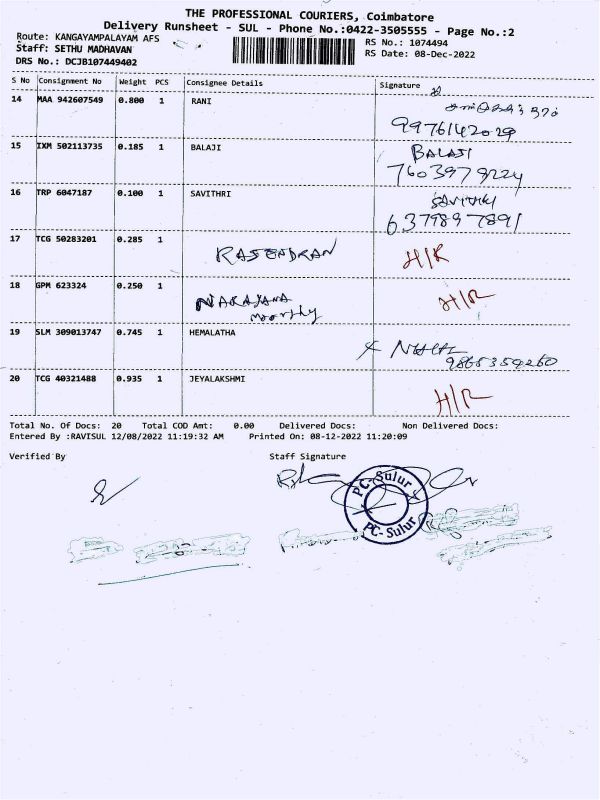 THE PROFESSIONAL COURIERS, Coimbatore
Delivery Runsheet - SUL - Phone No.:0422-3505555 - Page No.:2
Route: KANGAYAMPALAYAM AFS
RS No.: 1074494
Staff: SETHU MADHAVAN
RS Date: 08-Dec-2022
DRS No.: DCJB107449402
S No Consignment No Weight PCS Consignee Details Signature
14 MAA 942607549 0.800 1 RANI
9976142029
15 IXM 502113735 0.185 1 BALAJI BALAJI
7603979224
16 TRP 6047187 0.100 1 SAVITHRI SAVITHRI
6379897891
17 TCG 50283201 0.285 1 RAJENDRAN H/R
18 GPM 623324 0.250 1 NARAYANA H/R
moorthy
19 SLM 309013747 0.745 1 HEMALATHA
9865359260
20 TCG 40321488 0.935 1 JEYALAKSHMI H/R
Total No. Of Docs: 20 Total COD Amt: 0.00 Delivered Docs: Non Delivered Docs:
Entered By :RAVISUL 12/08/2022 11:19:32 AM Printed On: 08-12-2022 11:20:09
Verified By Staff Signature
PC-Sulur
PC-Sulur